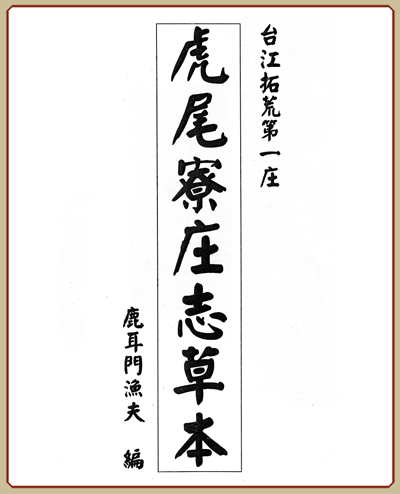 台江拓荒第一庄
虎尾寮庄志草本
鹿耳門漁夫 編